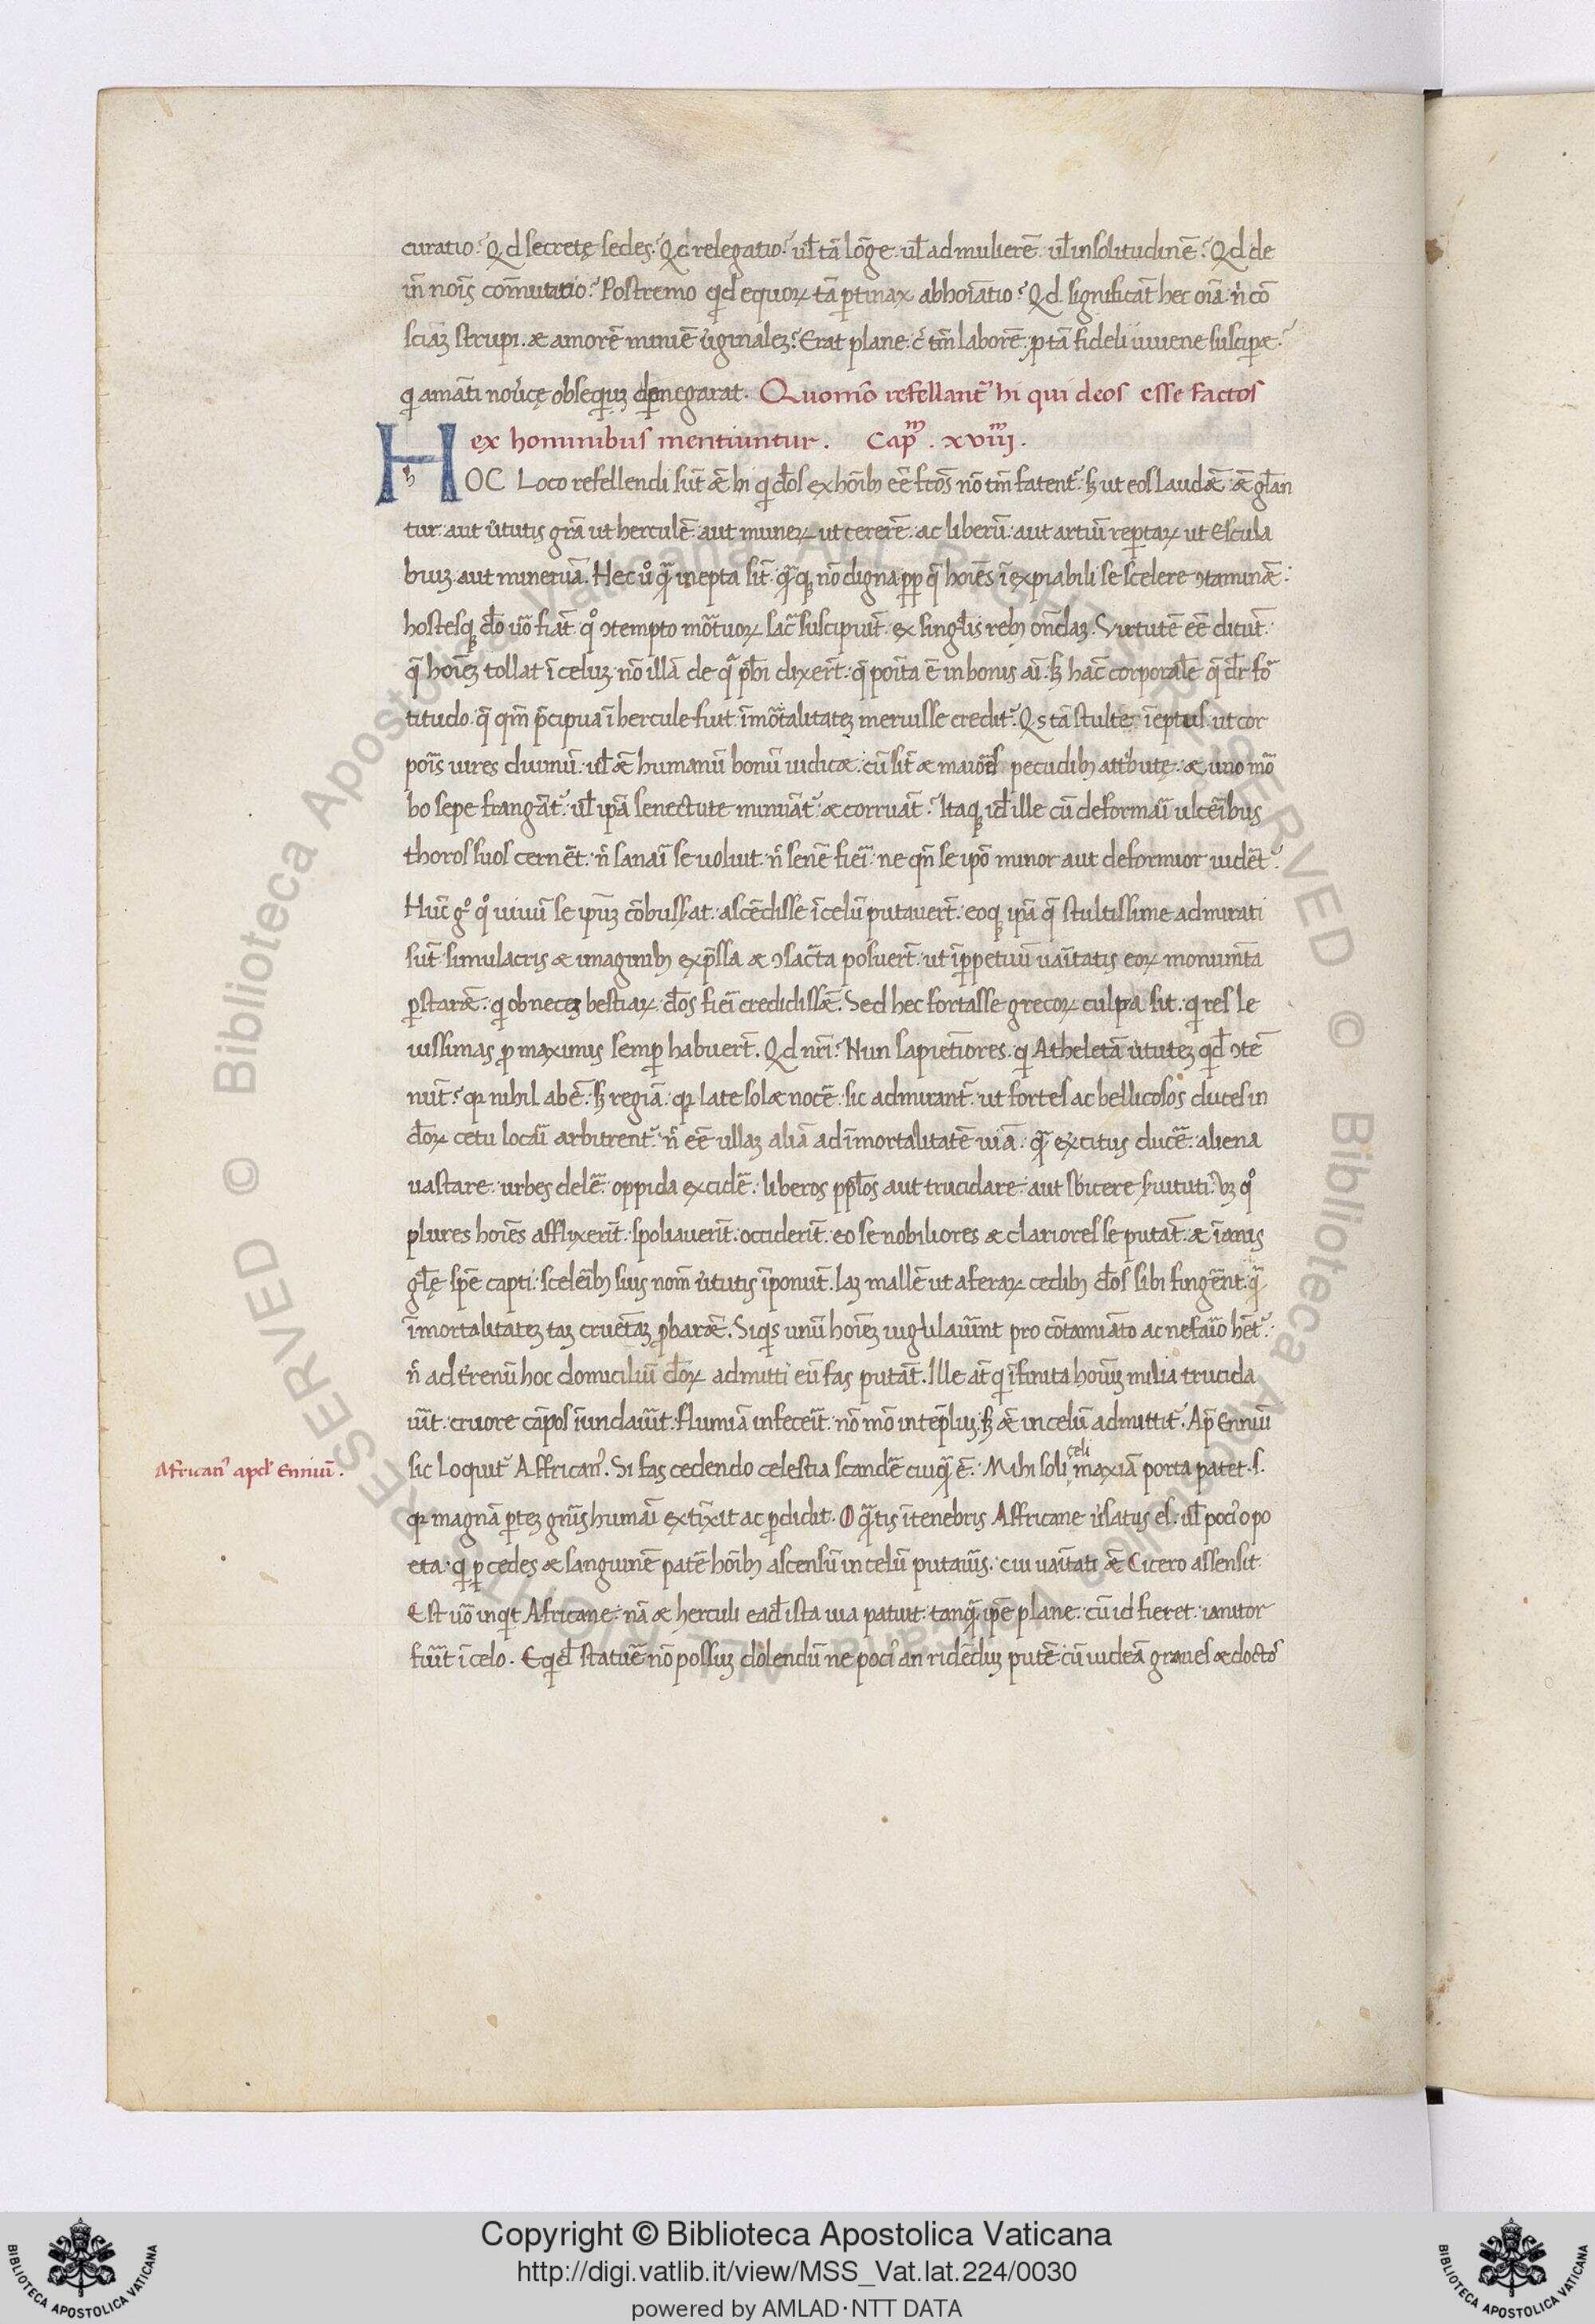 curatio? Qd secretę sedes? Qd relegatio? ul̄ tā lōge. ul̄ ad mulierē. ul̄ in solitudinē? Qd de
īn noīs cōmutatio? Postremo qid equoꝝ tā ꝑtinax abhoiatio? Qd significāt hec oīa. n̄ cō
sciaꝫ strupi. æ amorē miniē uirginaleꝫ? Erat plane. c̄ tm̄ laborē. ꝓ tā fideli iuuene susciꝑæ.
qi amāti nouercę obseqiuꝫ denegarat. Quomō refellant̃ hi qui deos esse factos
ex hominibus mentiuntur. Capm̄. xviiij.
HOC Loco refellendi sūt ǣ hi qi d̄os ex hoīb; eē fc̄os nō tm̄ fatent̃. sꝫ ut eos laudǣ. ǣ gl̄an
tur. aut ũtutis grā ut herculē. aut muneꝝ ut cererē. ac liberū. aut artiū reꝑtaꝝ ut Escula
biuꝫ aut mineruā. Hec ů qᷓ inepta sīt. qᷓqꝫ nō digna ꝓpꝑ q̄ hoiēs īexpiabili se scelere ꝯtaminǣ.
hostesqꝫ d̄o uō fiāt. qͦ ꝯtempto mõtuoꝝ sac̄ suscipiūt. ex singl̄is reb; on̄daꝫ. Virtutē eē dicūt.
q̄ hoiēꝫ tollat ī celuꝫ. nō illā de qᷓ phi dixer̄t. q̄ poīta ē in bonis aī. sꝫ hāc corporalē q̄ dr̄ fõ
titudo. q̄ qm̄ p̄cipua ī hercule fuit. īmõtalitateꝫ meruisse credit̃. Qs tā stulte ineptus. ut cor
poīs uires diuinū. ul̄ ǣ humanū bonū iudicæ. cū sīt æ maiores pecudib; attͥbutę. æ uno mõ
bo sepe frangāt̃. ul̄ ipā senectute minuāt̃. æ corruāt? Itaqꝫ id ille cū deformaī ulceībus
thoros suos cernēt. n̄ sanaī se uoluit. n̄ senē fieī. ne qn̄ se ipō minor aut deformior uidēt̃.
Hūc gͦ qͦ uiuū se ipuꝫ cōbussat. ascēdisse ī celū putauer̄t. eoqꝫ ipā q̄ stultissime admirati
sūt simulacris æ imaginib; exp̄ssa æ ꝯsacᷓta posuer̄t. ut ī ꝑpetuū uaītatis eoꝝ monumīta
ꝑstarǣ. qi ob neceꝫ bestiaꝝ. d̄os fieī credidissǣ. Sed hec fortasse grecoꝝ culpa sit. qi res le
uissimas ꝓ maximis semꝑ habuer̄t. Qd nr̄i? Nun sapiētiores. qi Atheletā ũtuteꝫ qid̄ ꝯtē
nūt? qꝛ nihil abē. sꝫ regiā. qꝛ late solæ nocē. sic admirant̃. ut fortes ac bellicosos duces in
d̄oꝝ cetu locaī arbitrent̃. n̄ eē ullaꝫ aliā ad īmortalitatē uiā. qᷓ excitus ducē̃. aliena
uastare. urbes delē̃. oppida excidē̃. liberos ppl̄os aut trucidare. aut sb̄icere s̃uituti. Vꝫ qͦ
plures hoiēs afflixerīt. spoliauerīt. occiderīt. eo se nobiliores æ clariores se putāt. æ īanis
gl̄ę spē capti. sceleīb; suis nom̄ ũtutis īponūt. Iaꝫ mallē ut a feraꝝ cedib; d̄os sibi fingēnt. qᷓ
īmortalitateꝫ taꝫ cruētaꝫ ꝓbarǣ. Siqis unū hoiēꝫ iugulauīnt pro cōtamiāto ac nefaīo hēt̃.
n̄ ad t̃renū hoc domiciliū d̄oꝝ admitti eū fas putāt. Ille āt qi īfinita hoiūꝫ milia trucida
uīt. cruore cāpos īundauīt. flumiā infecīt. nō mō in tēpluꝫ. sꝫ ǣ in celū admittit̃. Ap̄ Enniū
sic loquit̃ Affricanꝰ. Si fas cedendo celestia scandē̃ cuiqᷓ ē. Mihi soli celi maxiā porta patet. s.
Africanꝰ apd̄ Enniū.
qꝛ magnā ꝑteꝫ gnīs humāi extīxit ac ꝑdidit. O qᷓtis ī tenebris Affricane ũsatus es. ul̄ pociͦ o po
eta. qi ꝑ cedes æ sanguinē patē̃ hoīb; ascensū in celū putauīs. cui uaītati ǣ Cicero assensit.
Est uō inqͥt Africane. nā æ herculi ead̄ ista uia patuit. tanqᷓ ipē plane. cū id fieret. ianitor
fuīt ī celo. Eqid̄ statuē̃ nō possuꝫ dolendū ne pociꝰ an ridēduꝫ putē. cū uideā graues æ doctos